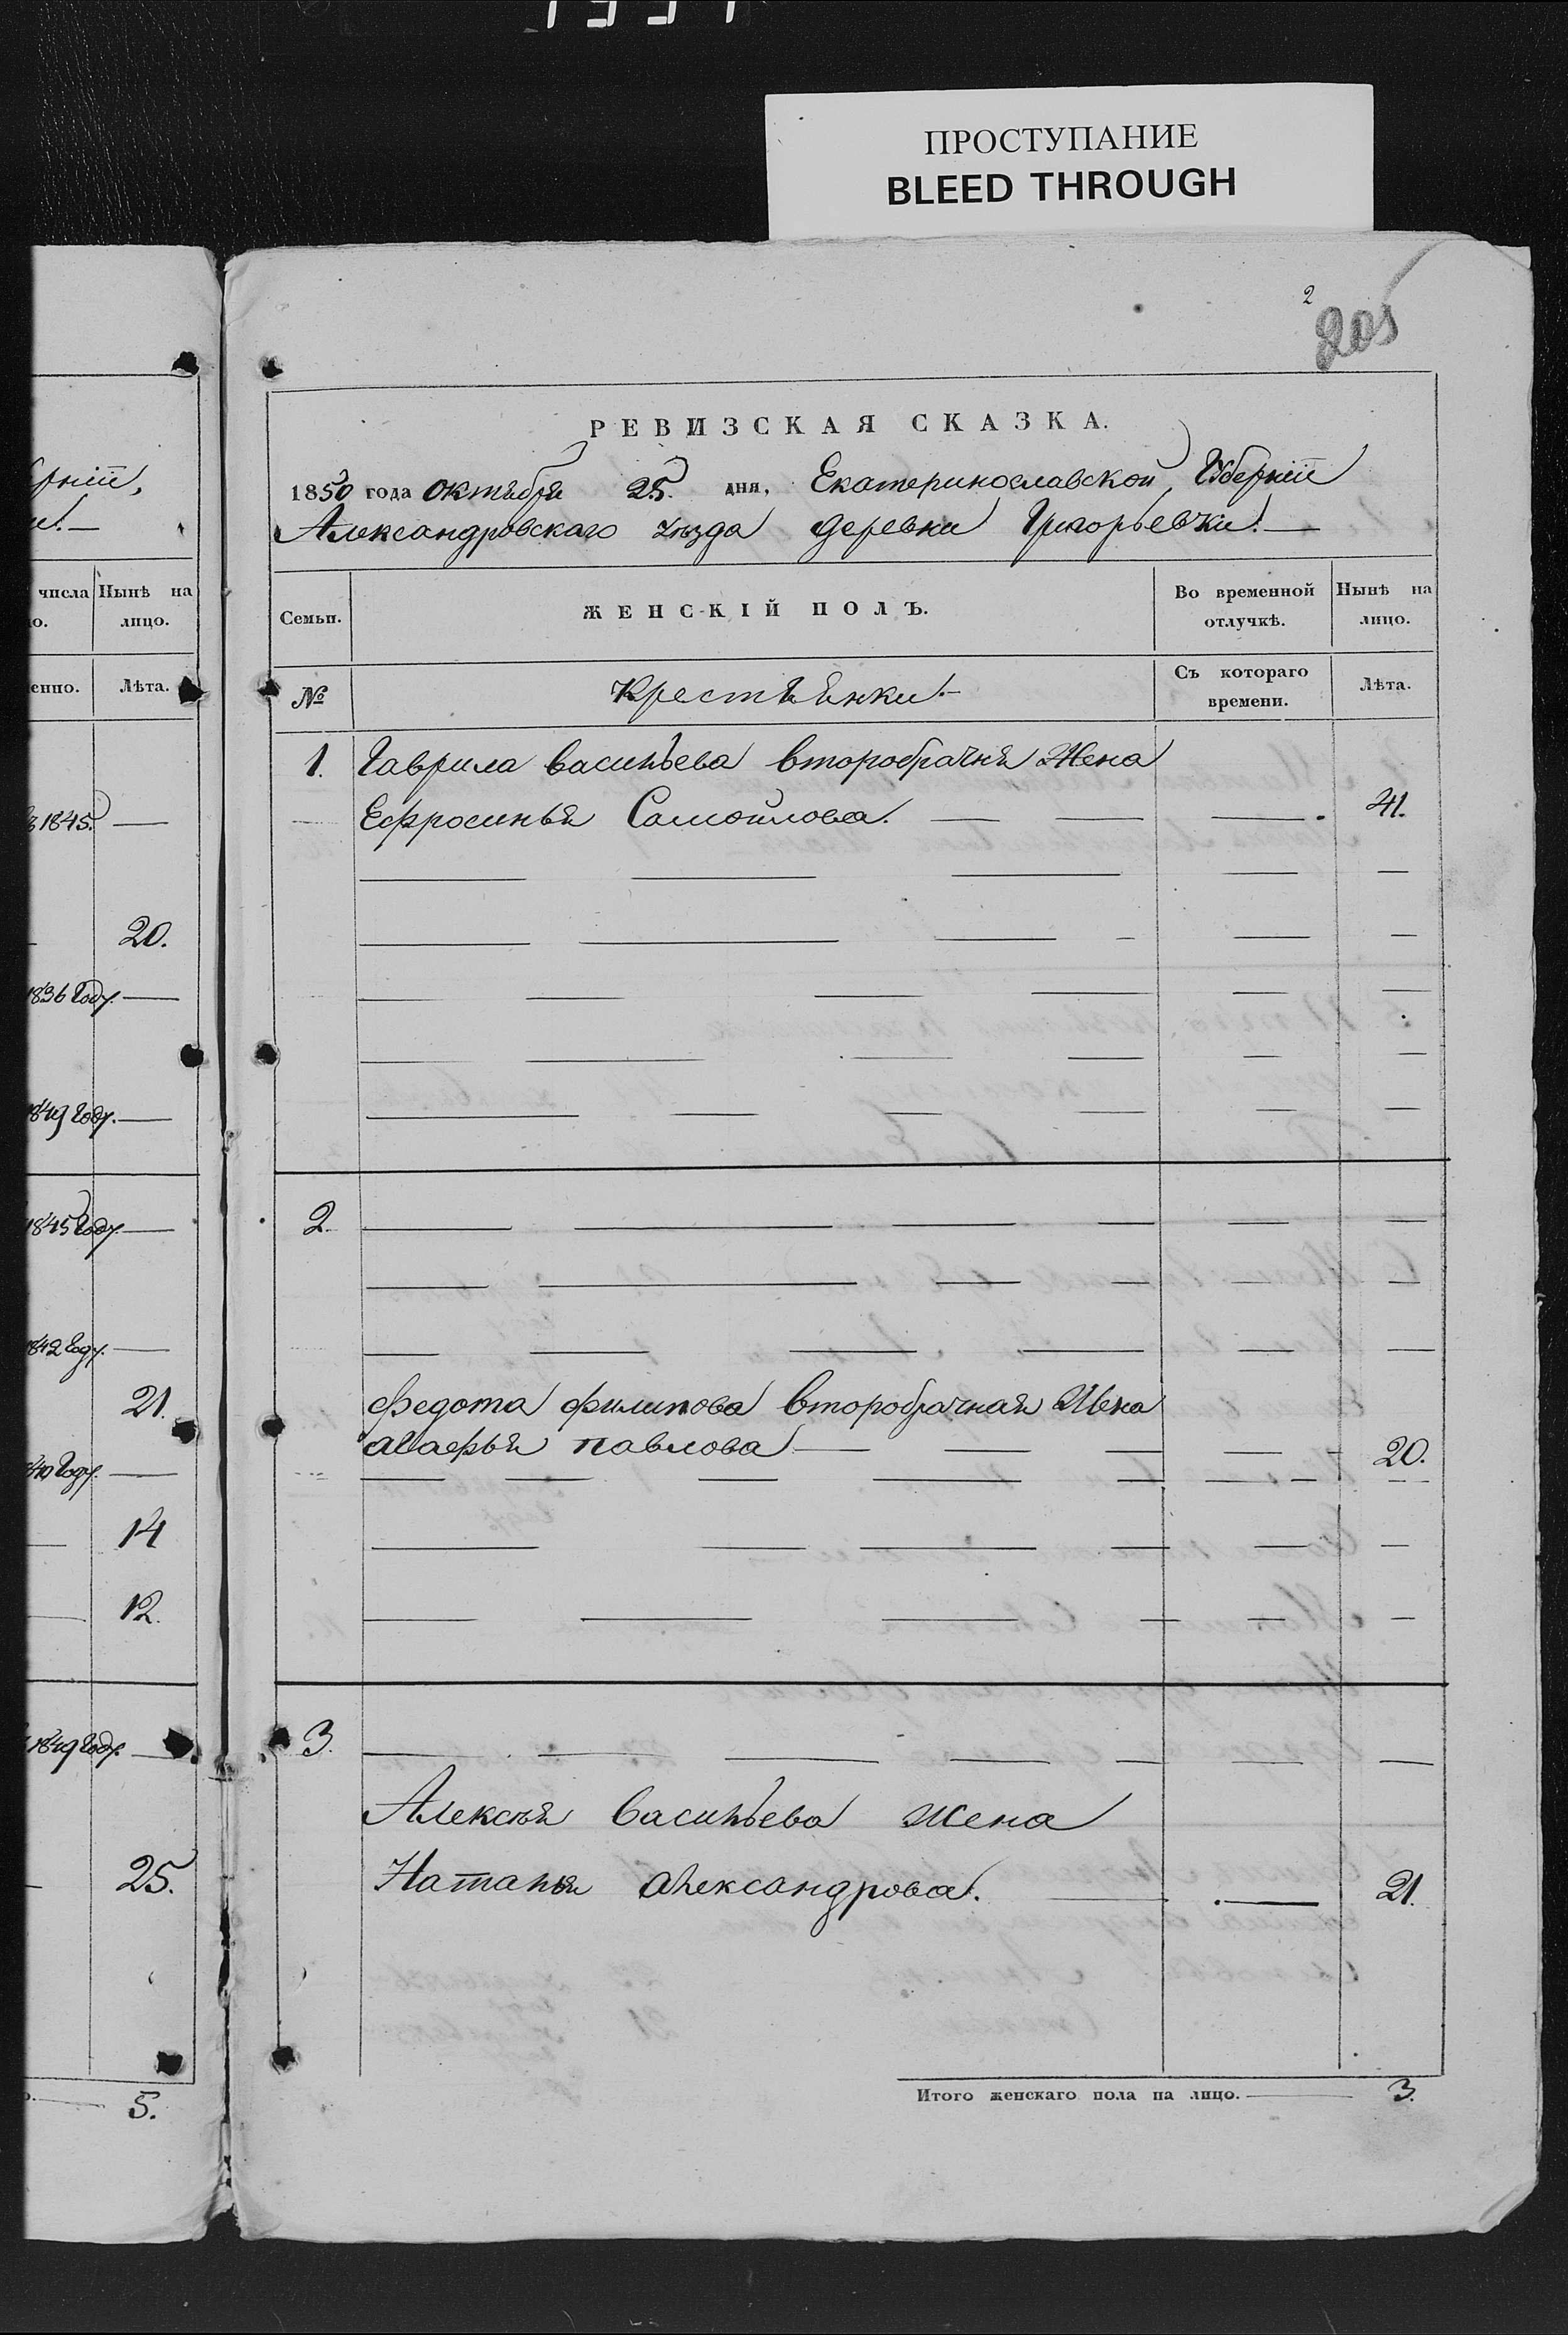 ПРОСТУПАНИЕ
BLEED THROUGH
2
205
РЕВИЗСКАЯ СКАЗКА.
1850 года октября 25. дня, Екатеринославской Губерніи
Александровскаго уѣзда деревни Григорьевки.
числа Нынѣ на
о. лицо.
енно. Лѣта.
1845.
20.
1836 Году.
1849 Году.
1845 Году.
1842 Году.
21.
14
12.
1849 Году.
25.
5.
Семьи. ЖЕНСКІЙ ПОЛЪ. Во временной Нынѣ на
отлучкѣ. лицо.
№ Крестьянки. Съ котораго Лѣта.
времени.
1. Гаврила васильева второбрачня Жена
Ефросинья Самойлова. 41.
2.
Федота филипова второбрачная Жена
Марфья павлова 20.
3.
Алексѣя васильева жена
Наталья александрова. 21.
Итого женскаго пола на лицо. 3.